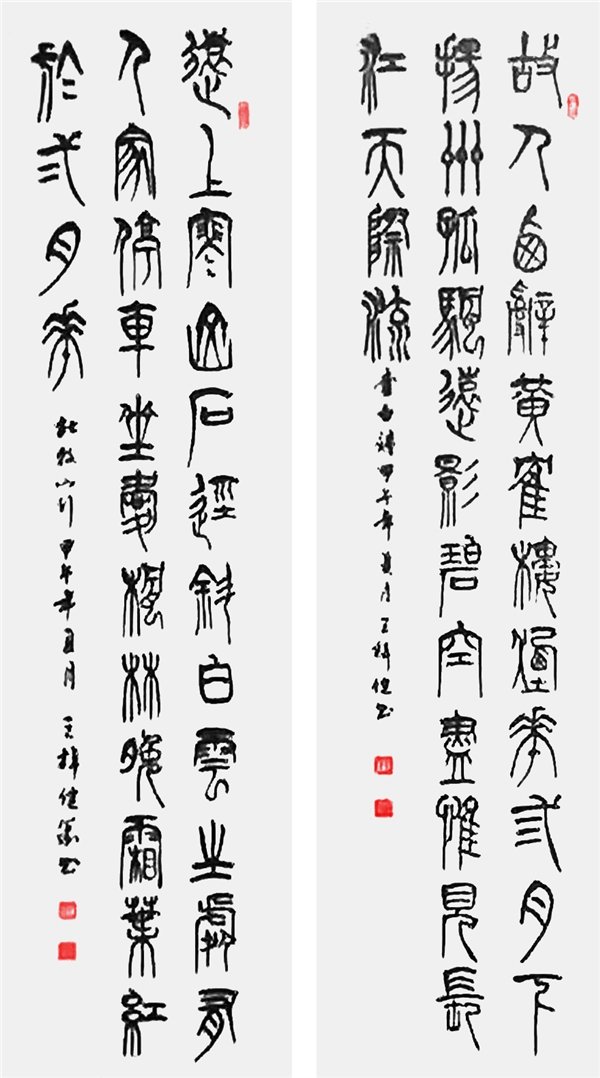 故人西辭黃鶴樓煙華弎月下
揚州孤帆遠影碧空盡惟見長
江天際流
李白詩甲午年夏月王梓書
遠上寒山石徑斜白雲生處有
人家停車坐愛楓林晚霜葉紅
於弍月華
杜牧山行甲午年夏月王梓篆書